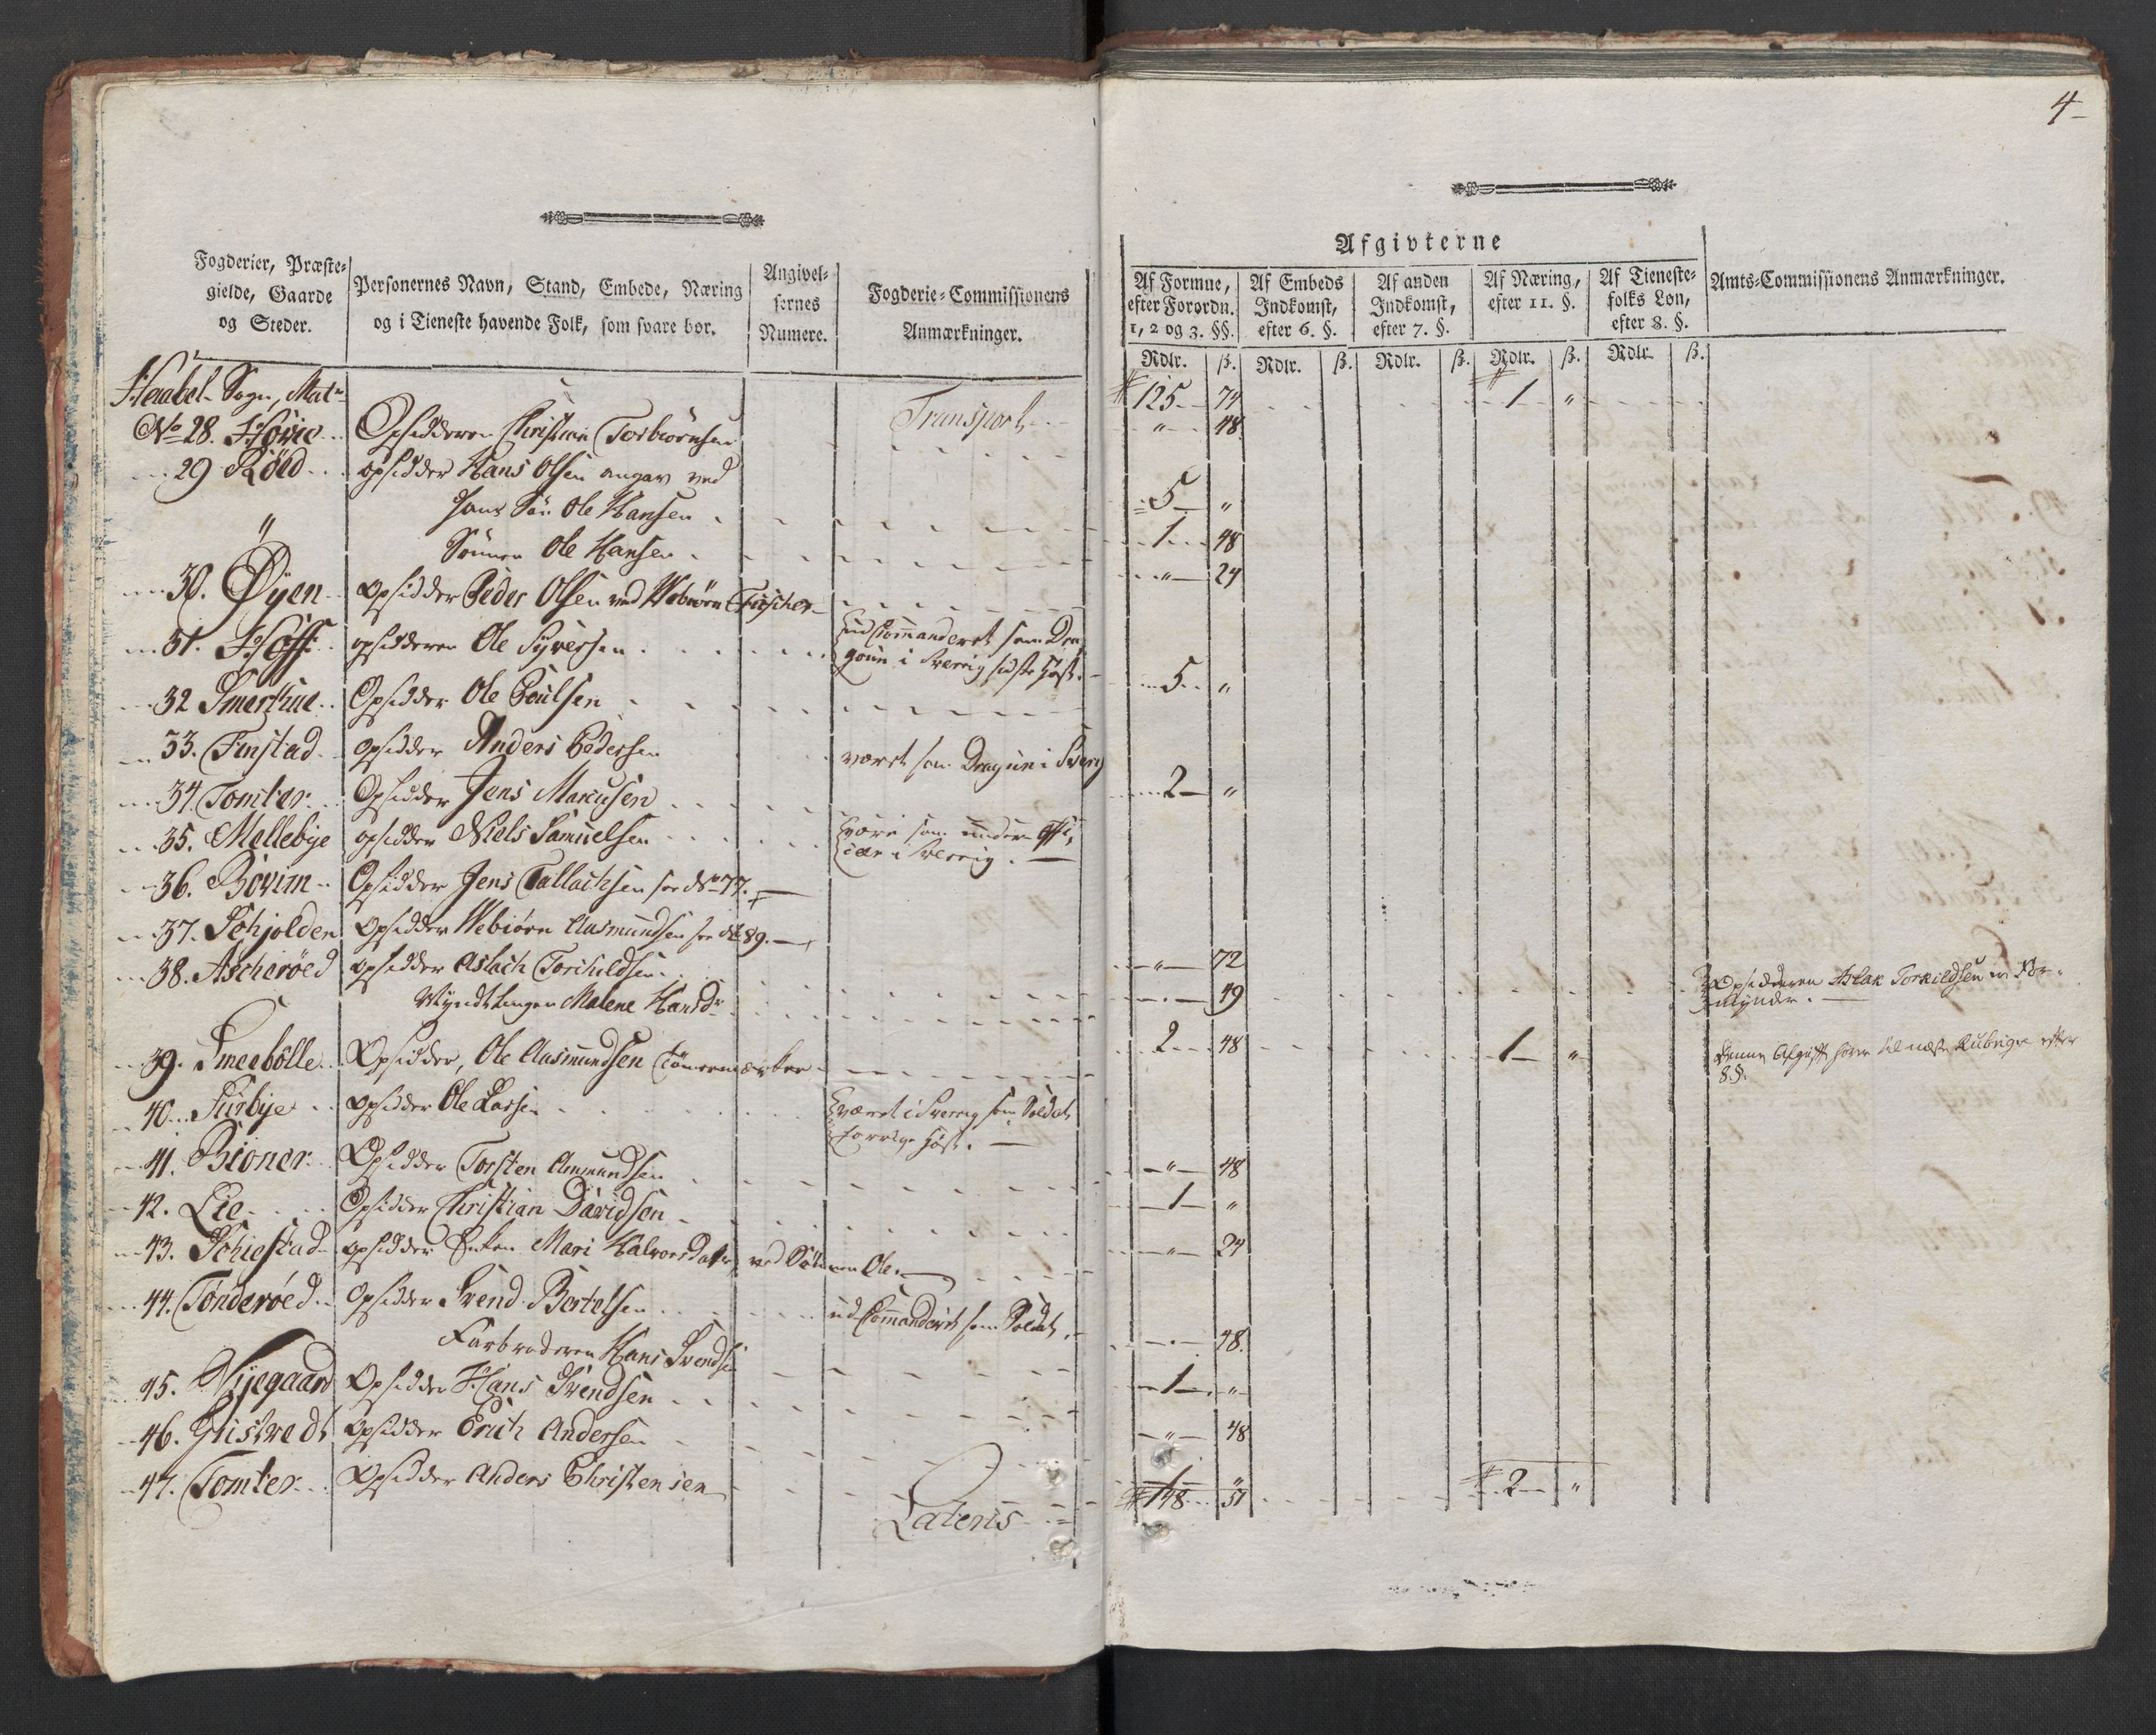 4
Fogderier, Præste-
gielde, Gaarde
og Steder.
Personernes Navn, Stand, Embede, Næring
og i Tieneste havende Folk, som svare bør.
Angivel-
sernes
Numere.
Fogderie-Commissionens
Anmærkninger.
Afgivterne
Af Formue,
efter Forordn.
1, 2 og 3. §§.
Af Embeds
Indkomst,
efter 6. §.
Af anden
Indkomst,
efter 7. §.
Af Næring,
efter 11. §.
Af Tieneste-
folks Løn,
efter 8. §.
Amts-Commissionens Anmærkninger.
Rdlr. ß. Rdlr. ß. Rdlr. ß. Rdlr. ß. Rdlr. ß.
Haabel Sogn, Matr
Transport 125 74 1 "
No 28. Høvie Opsidderen Christian Torbiørnsen " 48
29 Røed opsidder Hans Olsen angav ved
hans Søn Ole Hansen 5 "
" Sønnen Ole Hansen 1 48
30. Øyen opsidder Peder Olsen ved Webiørn Fischer " 24
31. Hoff opsidderen Ole Syversen
ud Commanderet som Dra
goun i Sverrig sidste Høst.
32 Smerhue Opsidder Ole Poulsen 5 "
33. Finstad opsidder Anders Pedersen været som Dragun i Sverig
34. Tomter Opsidder Jens Marcusen 2 "
35. Mellebye opsidder Niels Samuelsen
være som under Offi
ceer i Sverrig.
36. Bovim Opsidder Jens Tallachsen see No 77.
37. Schjolden opsidder Webiørn Aasmundsen see No 89.
38. Ascherøed opsidder Aslach Torchildsen " 72
Myndtlingen Malene Hansdr " 49
Opsidderen Aslak Torkildsen er For-
mynder.
39. Smeebølle Opsidder, Ole Aasmundsen Tømmermærker 2 48 1 "
Denne Afgift hører til næste Rubrique efter
8. §.
40. Surbye opsidder Ole Larsen
været i Sverrig som Soldat
forrige Høst.
41. Bioner Opsidder Torsten Ammundsen " 48
42. Lie Opsidder Christian Davidsen 1 "
43. Schiefstad opsidder Enken Mari Halvorsdatter ved Sønnen Ole. " 24
44. Tønderøed Opsidder Svend Bertelsen ud Commanderet som Soldat.
Farbroderen Hans Svendsen " 48.
45. Nyegaard Opsidder Hans Svendsen 1 "
46. Glistvedt opsidder Erich Andersen " 48
47. Tomter Opsidder Anders Christensen 1 "
Lateris 148 51 2 "